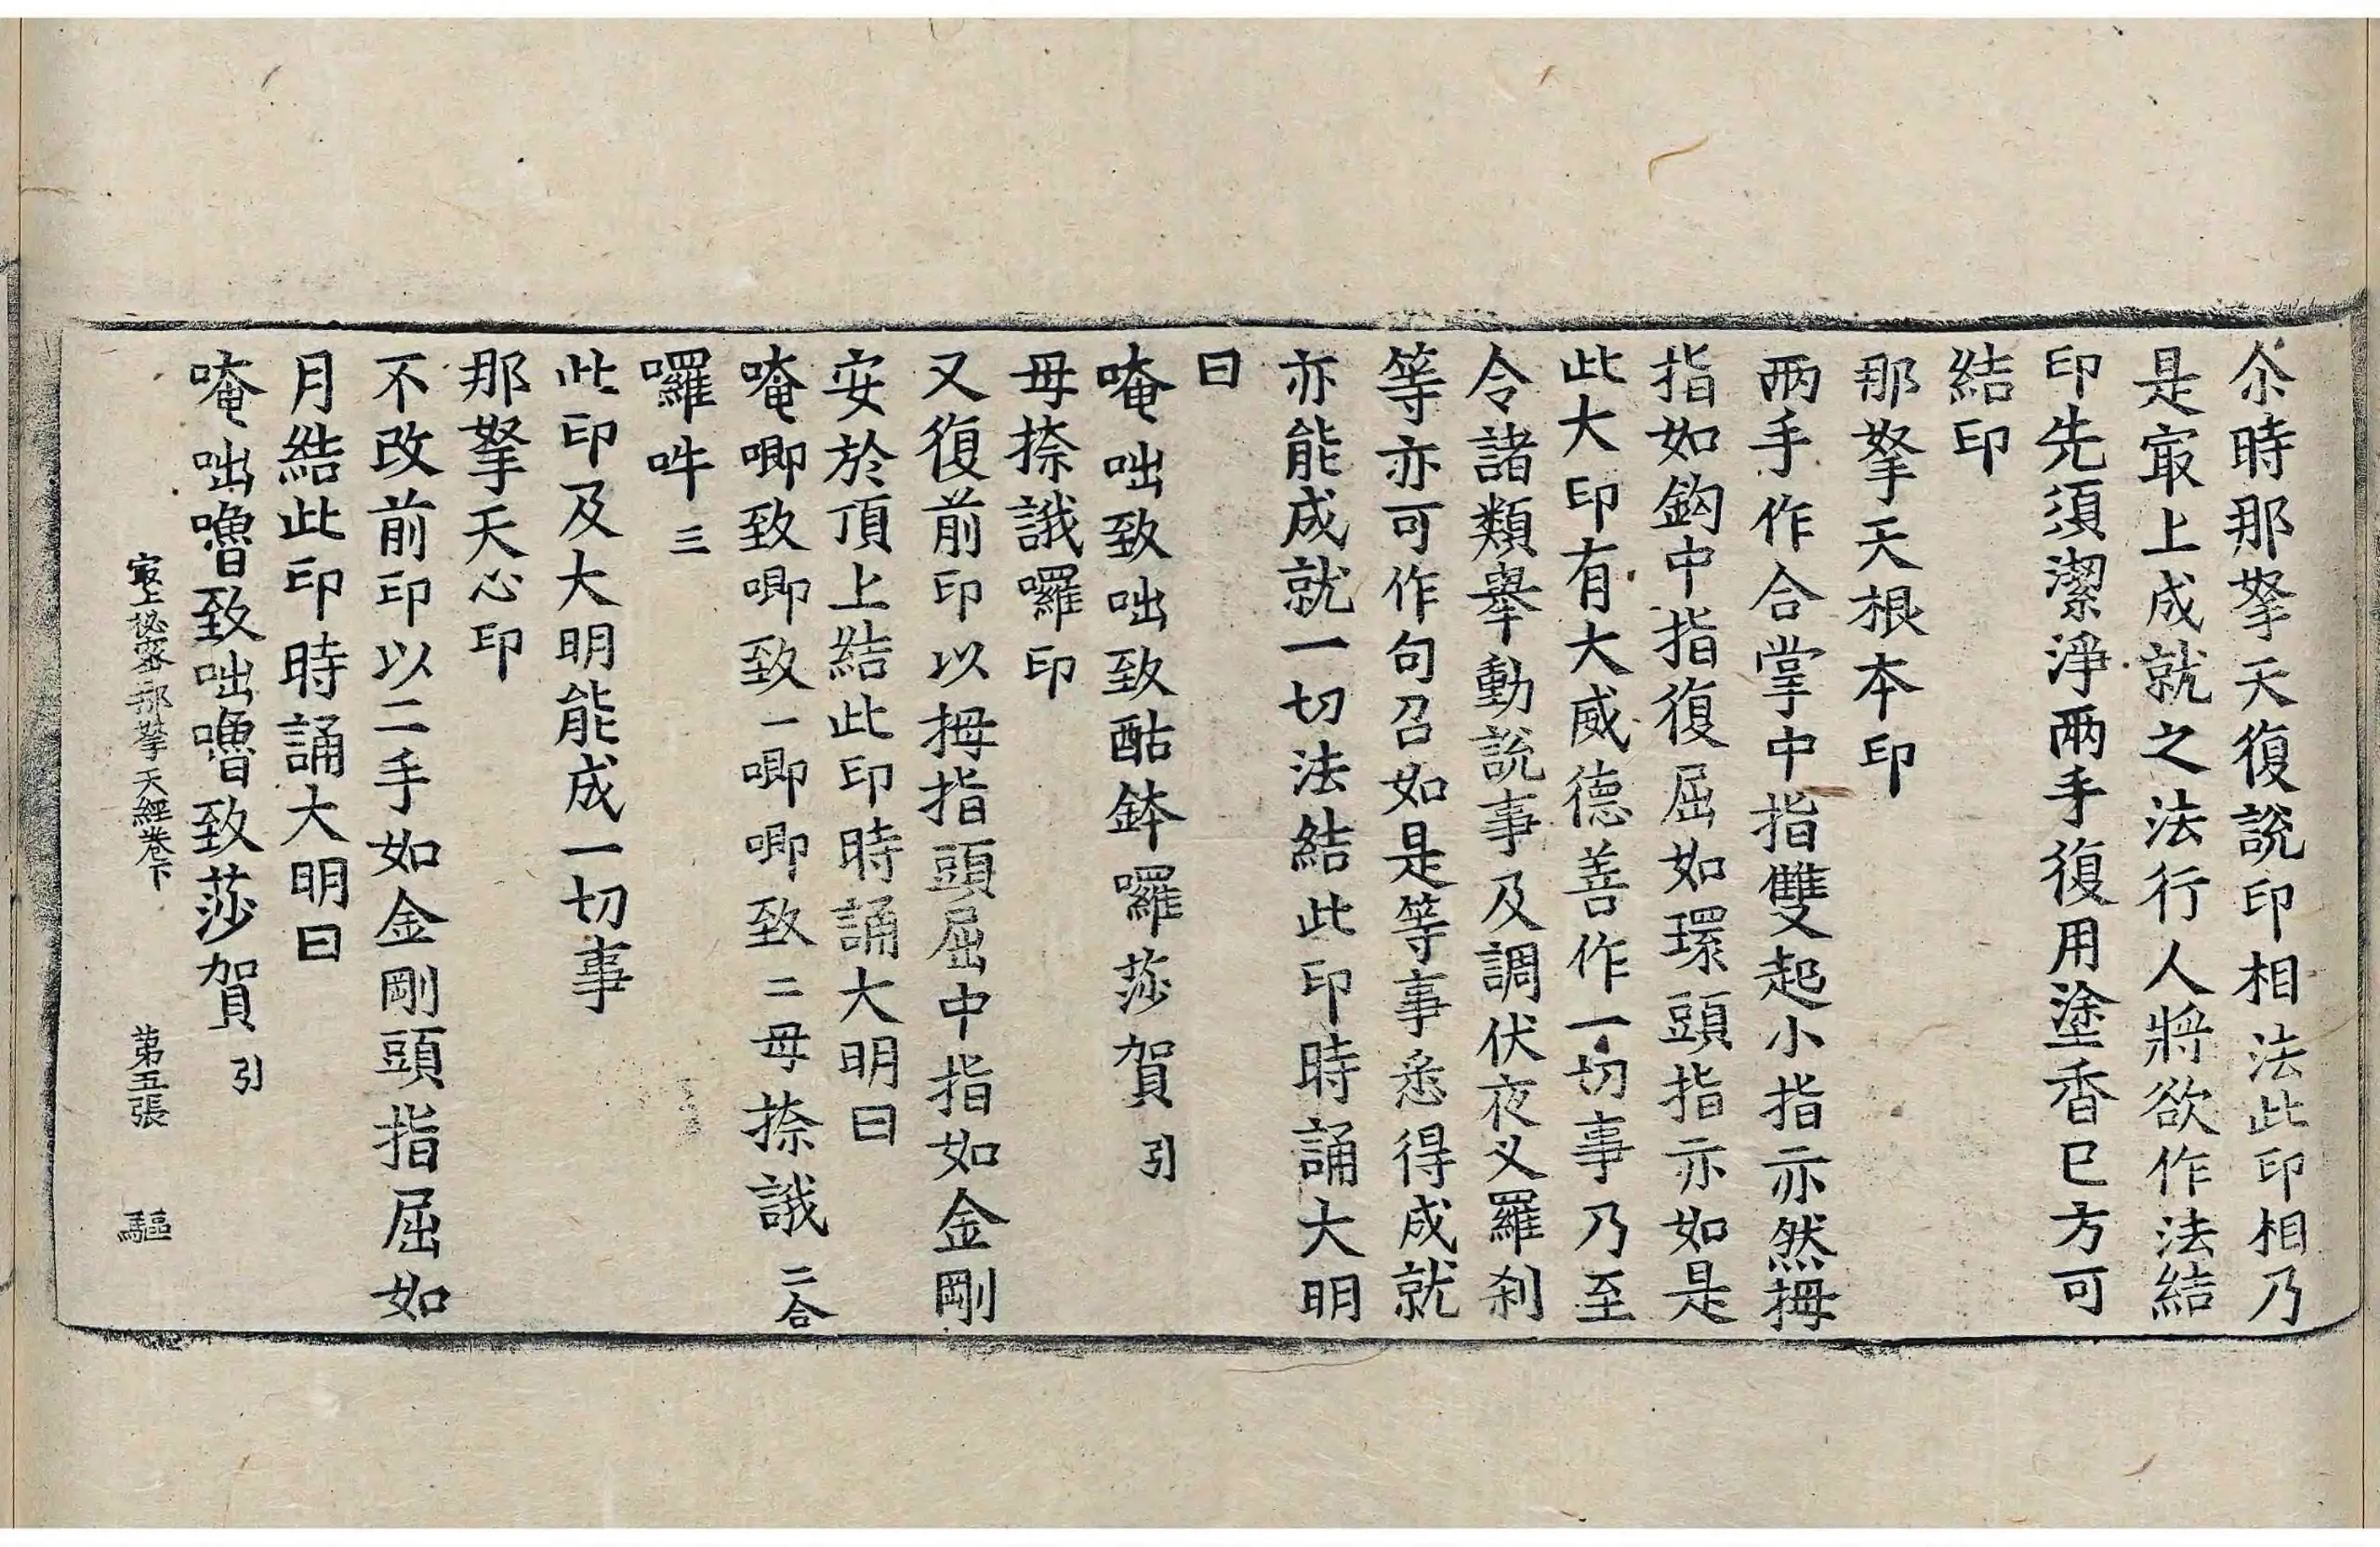 尒時那拏天復說印相法此印相乃
是㝡上成就之法行人將欲作法結
印先須潔淨兩手復用塗香巳方可
結印
那拏天根本印
兩手作合掌中指雙起小指亦然拇
指如鈎中指復屈如環頭指亦如是
此大印有大威德善作一切事乃至
令諸類舉動說事及調伏夜叉羅刹
等亦可作句召如是等事悉得成就
亦能成就一切法結此印時誦大明
曰
唵咄致咄致酤鉢囉莎賀引
毋捺誐囉印
又復前印以拇指頭屈中指如金剛
安於頂上結此印時誦大明曰
唵唧致唧致一唧唧致二毋捺誐二合
囉吽三
此印及大明能成一切事
那拏天心印
不改前印以二手如金剛頭指屈如
月結此印時誦大明曰
唵咄嚕致咄嚕致莎賀引
㝡上祕密那拏天經卷下 苐五張 驅